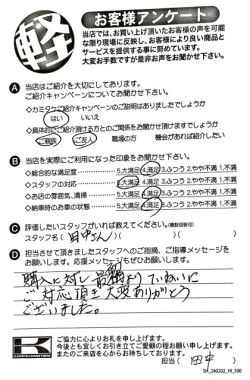 軽
お客様アンケート
当店では、お買い上げ頂いたお客様の声を可能
な限り現場に反映し、お客様により良い商品と
サービスを提供する事に努めています。
大変お手数ですが是非お声をお聞かせ下さい。
A 当店はご紹介を大切にしております。
ご紹介キャンペーンについてお聞かせ下さい。
◇カミタケご紹介キャンペーンのご説明はありましたでしょうか
はい いいえ
◇具体的にご紹介頂ける方とのご関係をお聞かせ頂けますでしょうか
ご親戚 ご友人 職場の方 機会があれば紹介したい
B 当店を実際にご利用になった印象をお聞かせ下さい。
◇総合的な満足度 5.大満足 4.満足 3.ふつう 2.やや不満 1.不満
◇スタッフの対応 5.大満足 4.満足 3.ふつう 2.やや不満 1.不満
◇お店の雰囲気、清掃 5.大満足 4.満足 3.ふつう 2.やや不満 1.不満
◇納車時のお車の状態 5.大満足 4.満足 3.ふつう 2.やや不満 1.不満
C 評価したいスタッフがいれば教えてください。(複数回答可)
スタッフ名( 田中さん )( )
D 担当させて頂きましたスタッフへのご指摘、ご指導メッセージを
お願いします。応援メッセージもぜひお願いします。
購入に対し、ていねいに
ご対応頂き大変ありがとう
ございました。
K
ご協力に心よりお礼を申し上げます。
今後とも宜しくお引き立てご愛顧の程お願い申し上げます。
またのご来店を心からお待ちしております。
担当( 田中 )
SH_240202_HI_500